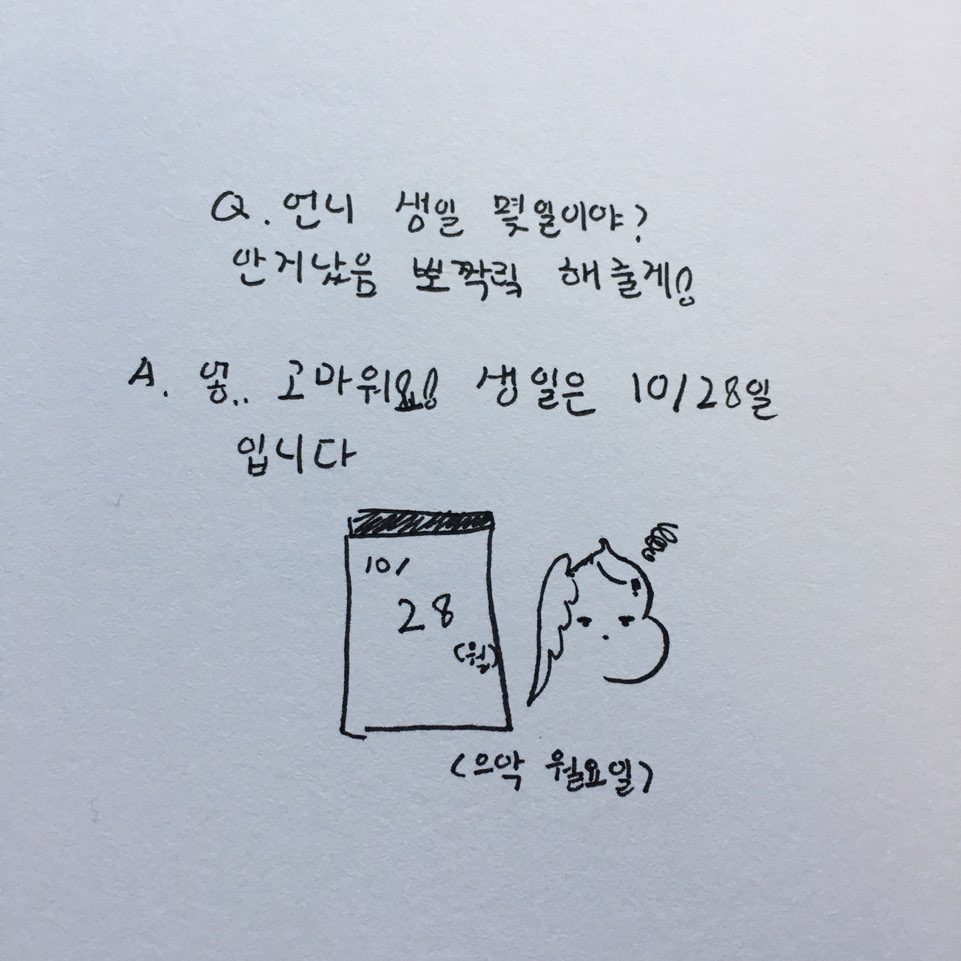 Q. 언니 생일 몇일이야?
안지났음 뽀짝릭 해줄게!
A. 옝.. 고마워요! 생일은 10/28일
입니다
10/
28
(월)
(으악 월요일)